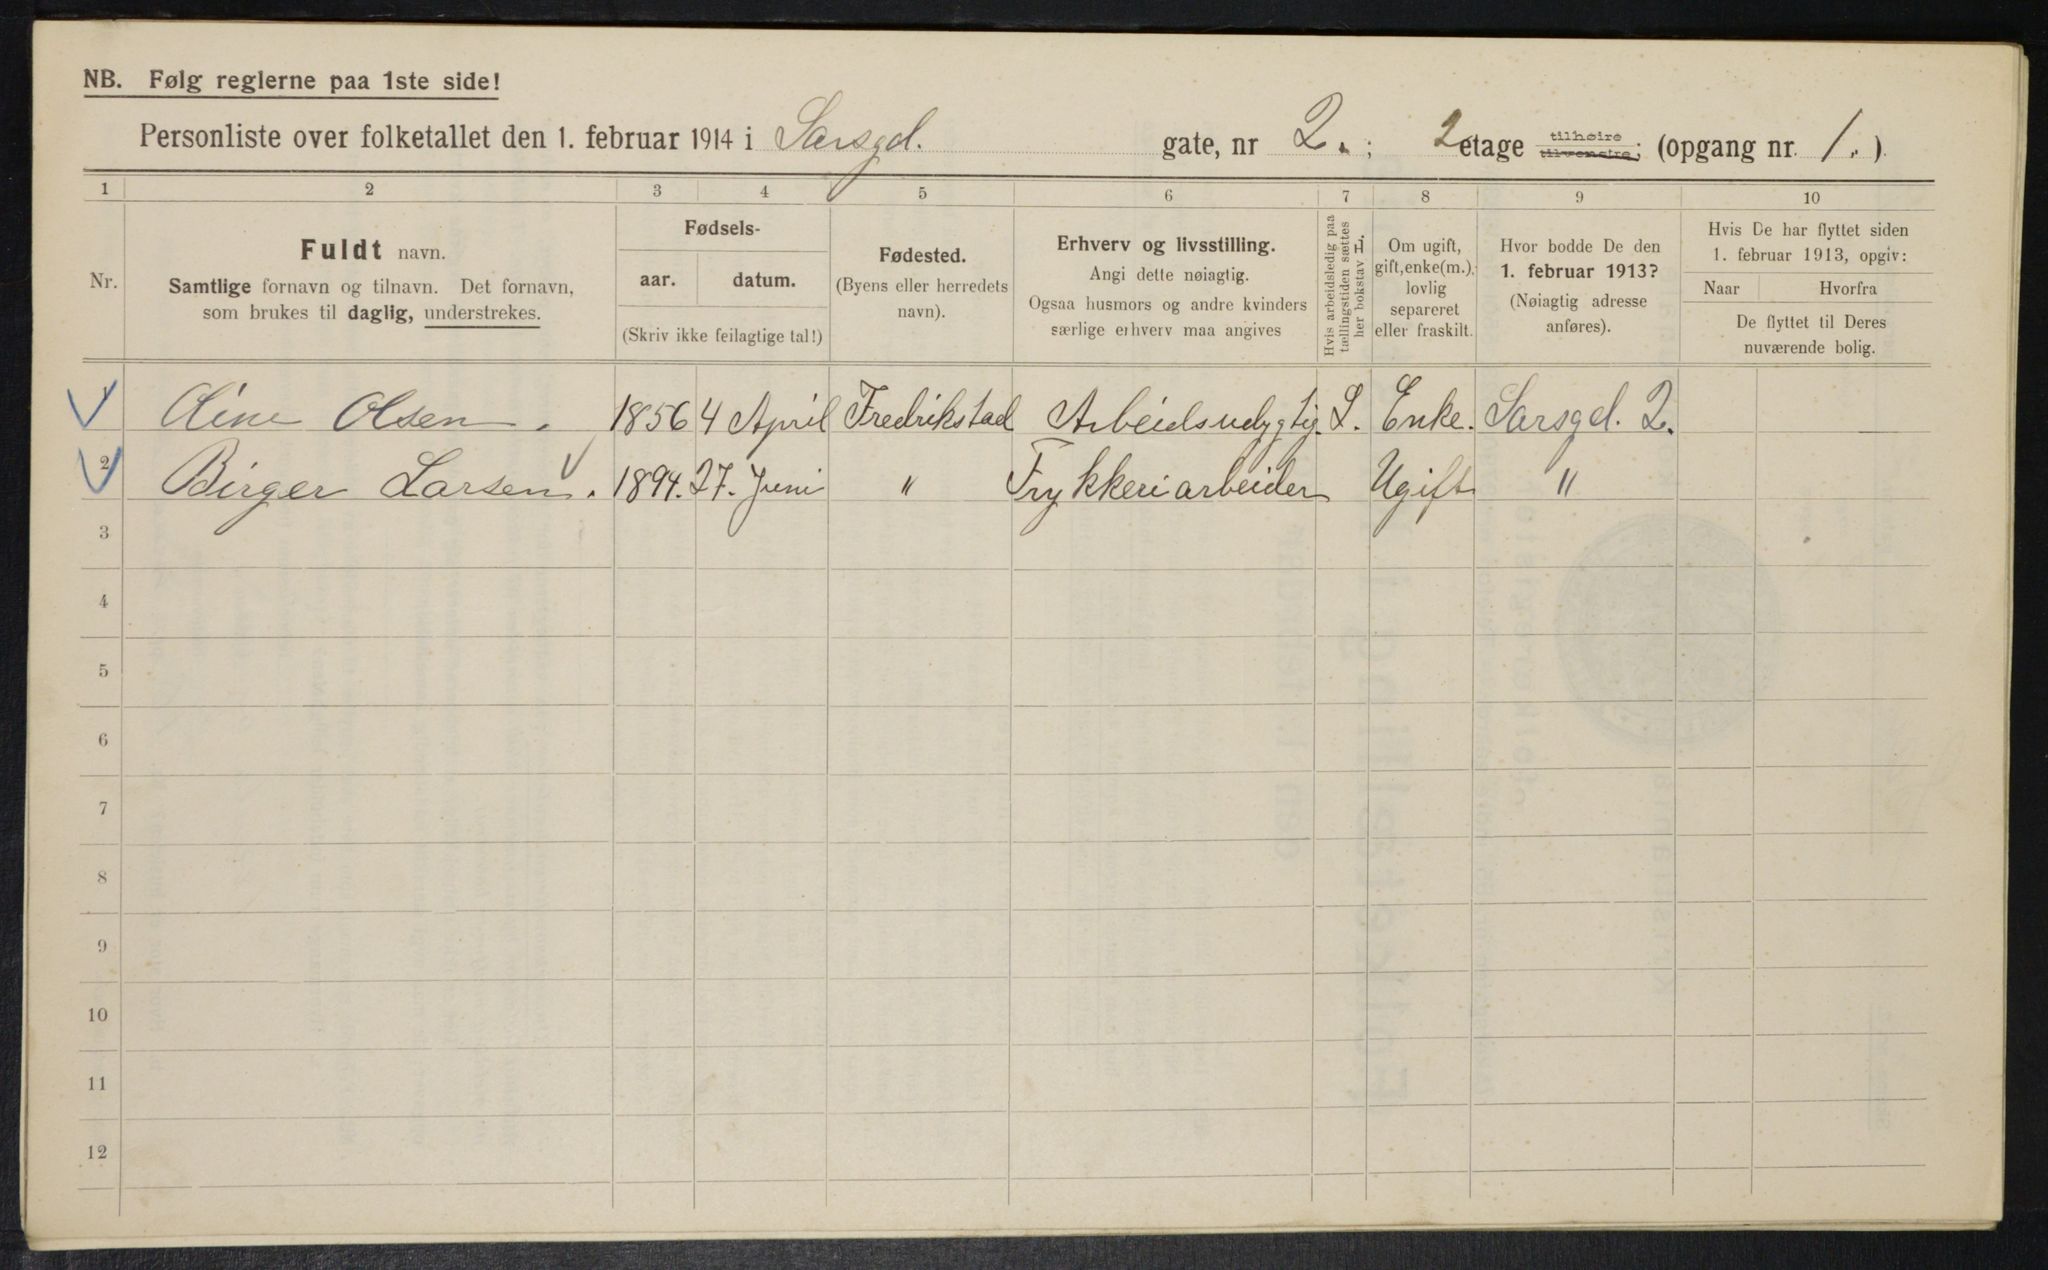 NB. Følg reglerne paa 1ste side!
Personliste over folketallet den 1. februar 1914 i Sarsgd. gate, nr 2.; 2 etage tilhøire tilvenstre; (opgang nr. 1.)
1 2 3 4 5 6 7 8 9 10
Nr.
Fuldt navn.
Samtlige fornavn og tilnavn. Det fornavn,
som brukes til daglig, understrekes.
Fødsels-
aar. datum.
(Skriv ikke feilagtige tal!)
Fødested.
(Byens eller herredets
navn).
Erhverv og livsstilling.
Angi dette nøiagtig.
Ogsaa husmors og andre kvinders
særlige erhverv maa angives
Hvis arbeidsledig paa
tællingstiden sættes
her bokstav L.
Om ugift,
gift, enke(m.),
lovlig
separeret
eller fraskilt.
Hvor bodde De den
1. februar 1913?
(Nøiagtig adresse
anføres).
Hvis De har flyttet siden
1. februar 1913, opgiv:
Naar Hvorfra
De flyttet til Deres
nuværende bolig.
1 Oline Olsen. 1856 4 April Fredrikstad Arbeidsudygtig. L. Enke. Sarsgd. 2.
2 Birger Larsen. 1894. 27. Juni " Trykkeriarbeider Ugift "
3
4
5
6
7
8
9
10
11
12